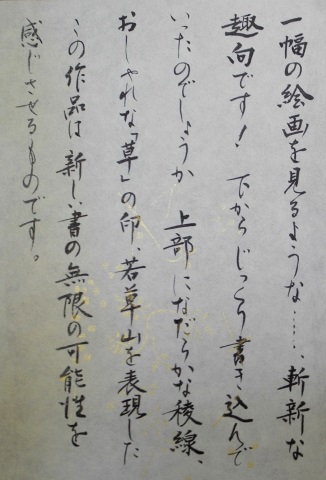 一幅の絵画を見るような……、斬新な
趣向です！　下からじっくり書き込んで
いったのでしょうか　上部になだらかな稜線、
おしゃれな「草」の印、若草山を表現した
この作品は新しい書の無限の可能性を
感じさせるものです。